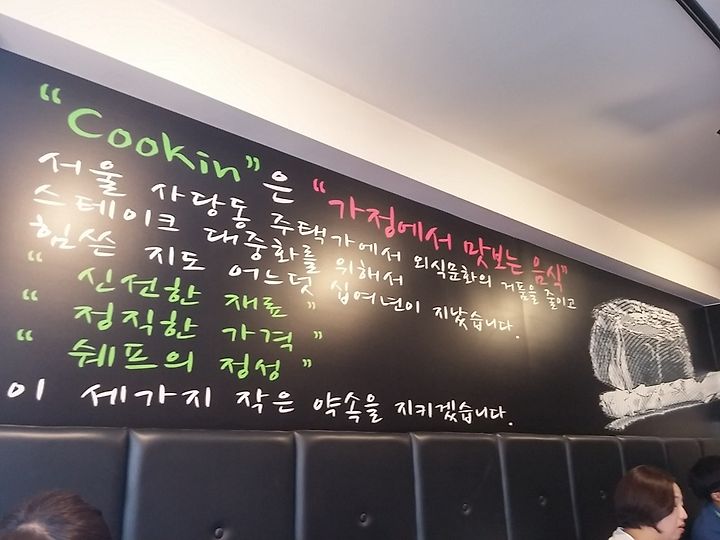 “Cookin”은 “가정에서 맛보는 음식”
서울 사당동 주택가에서 외식문화의 거품을 줄이고
스테이크 대중화를 위해서
힘쓴 지도 어느덧 십여년이 지났습니다.
“ 신선한 재료 ”
“ 정직한 가격 ”
“ 쉐프의 정성 ”
이 세가지 작은 약속을 지키겠습니다.